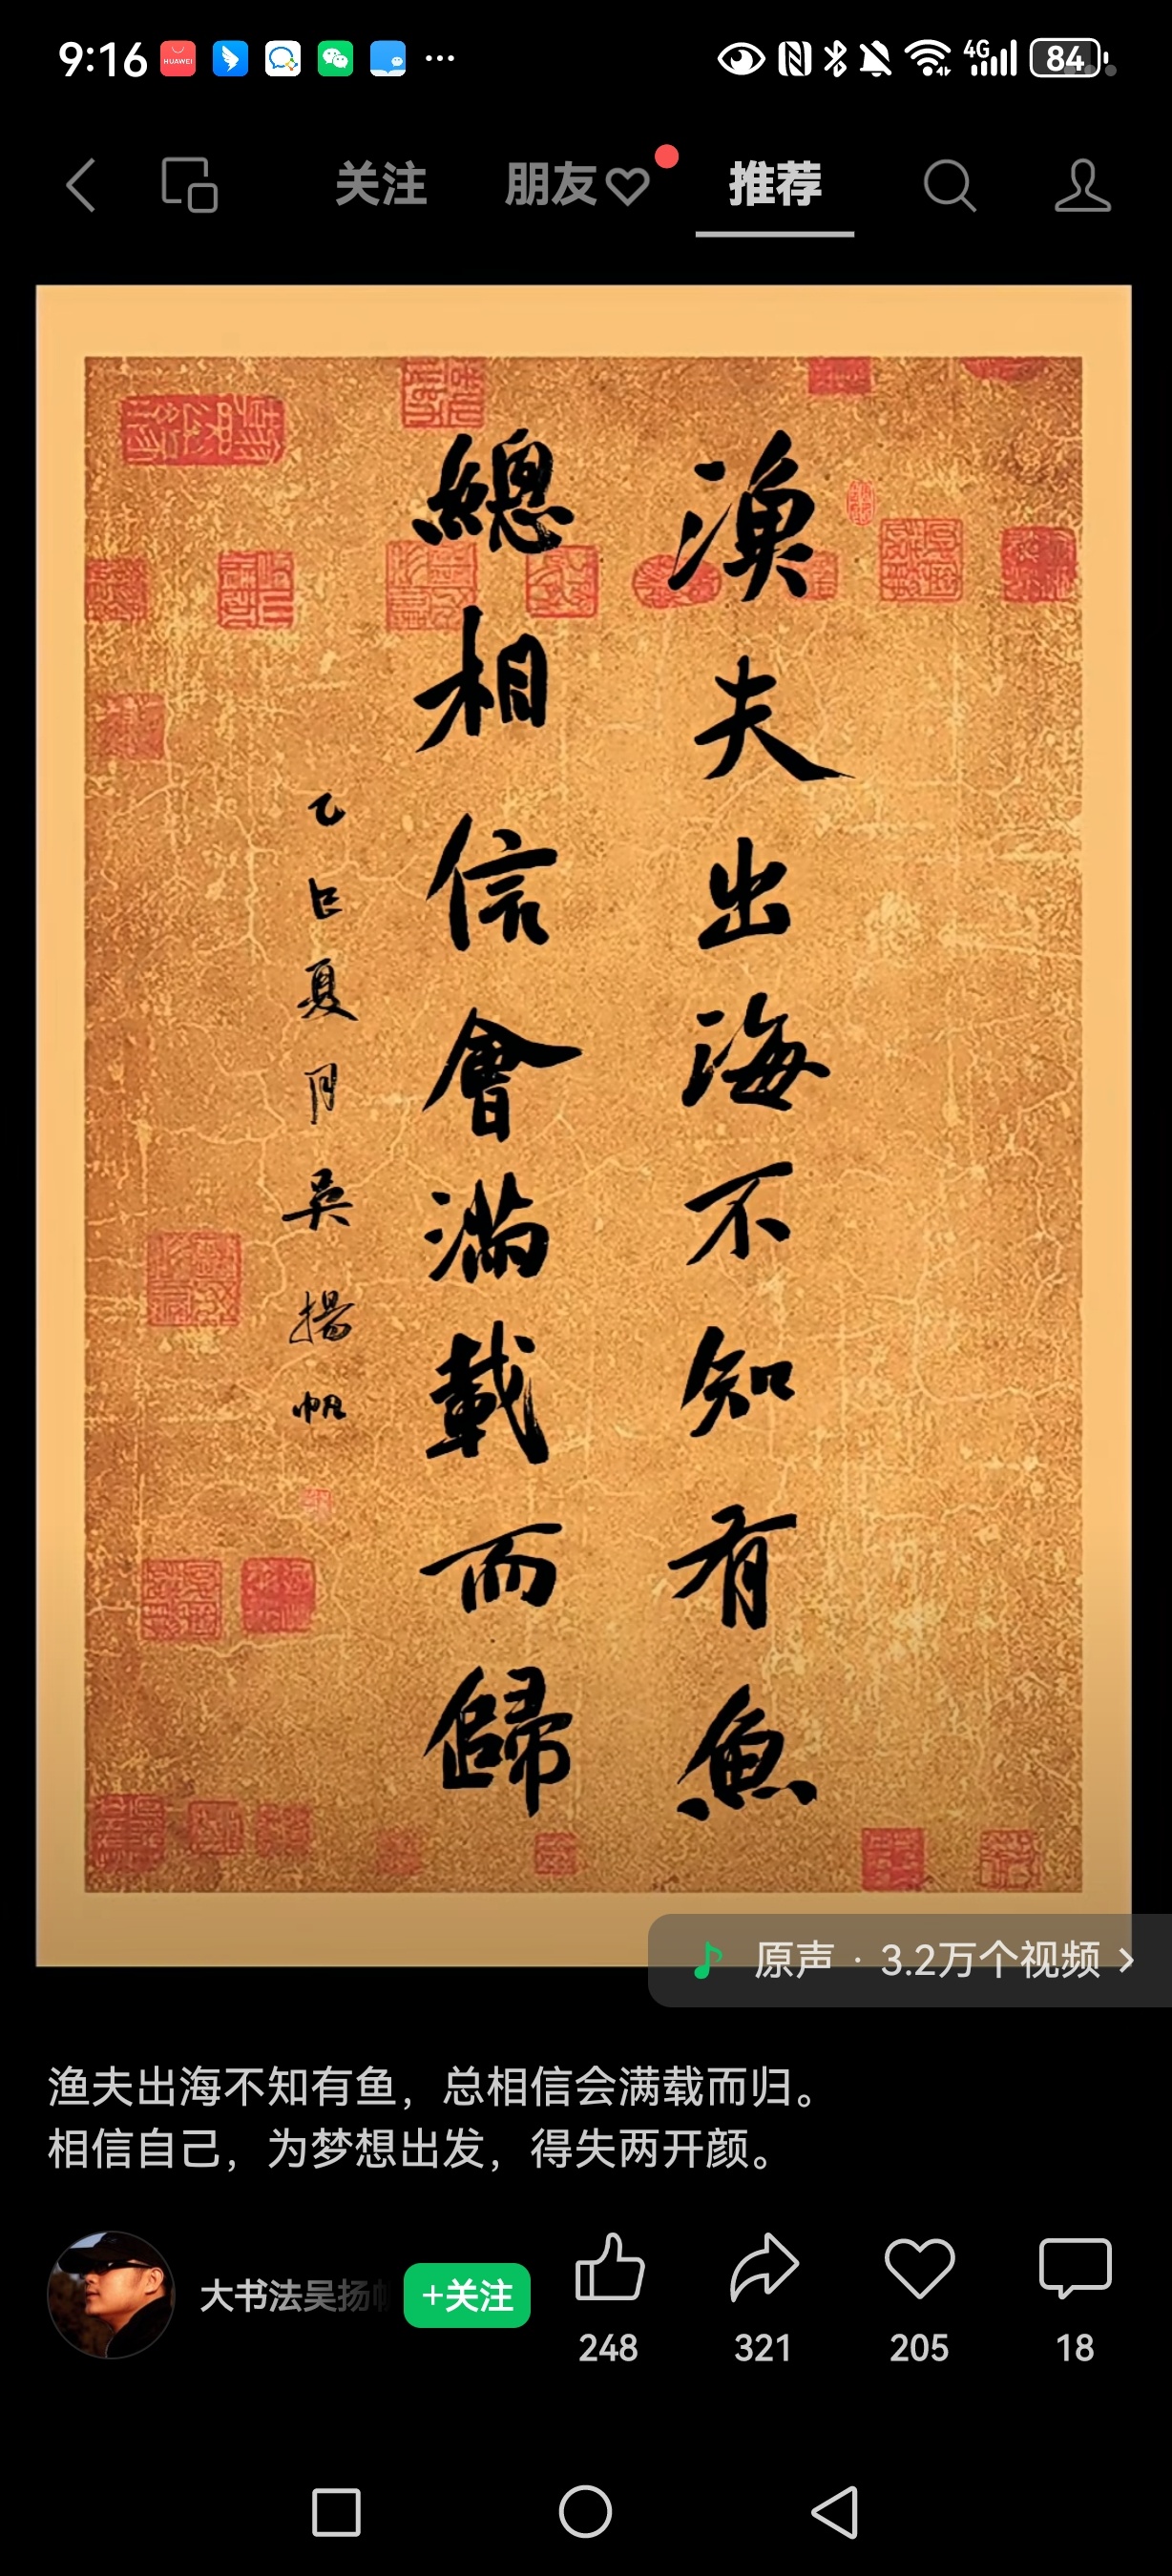 9:16
HUAWEI
4G
84
关注
朋友
推荐
漁夫出海不知有魚
總相信會滿載而歸
乙巳夏月吳揚帆
原声 · 3.2万个视频
渔夫出海不知有鱼，总相信会满载而归。
相信自己，为梦想出发，得失两开颜。
大书法吴扬帆
+关注
248
321
205
18